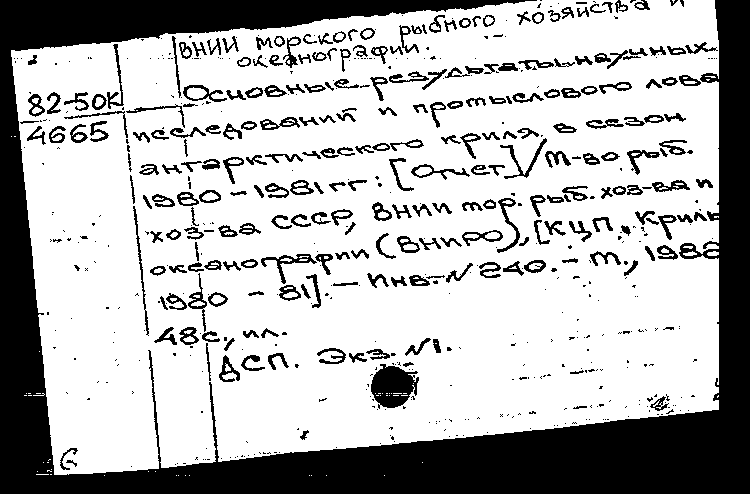 ВНИИ морского рыбного хозяйства и
океанографии.
82-50К Основные результаты научных
4665 исследований и промыслового лова
антарктического криля в сезон
1980-1981гг: [Отчет]/М-во рыб.
хоз-ва СССР, ВНИИ мор. рыб. хоз-ва и
океанографии (ВНИРО), [КЦП "Криль
1980 - 81]. - Инв.-N 240. - М., 1982
48с., ил.
ДСП. Экз. N1.